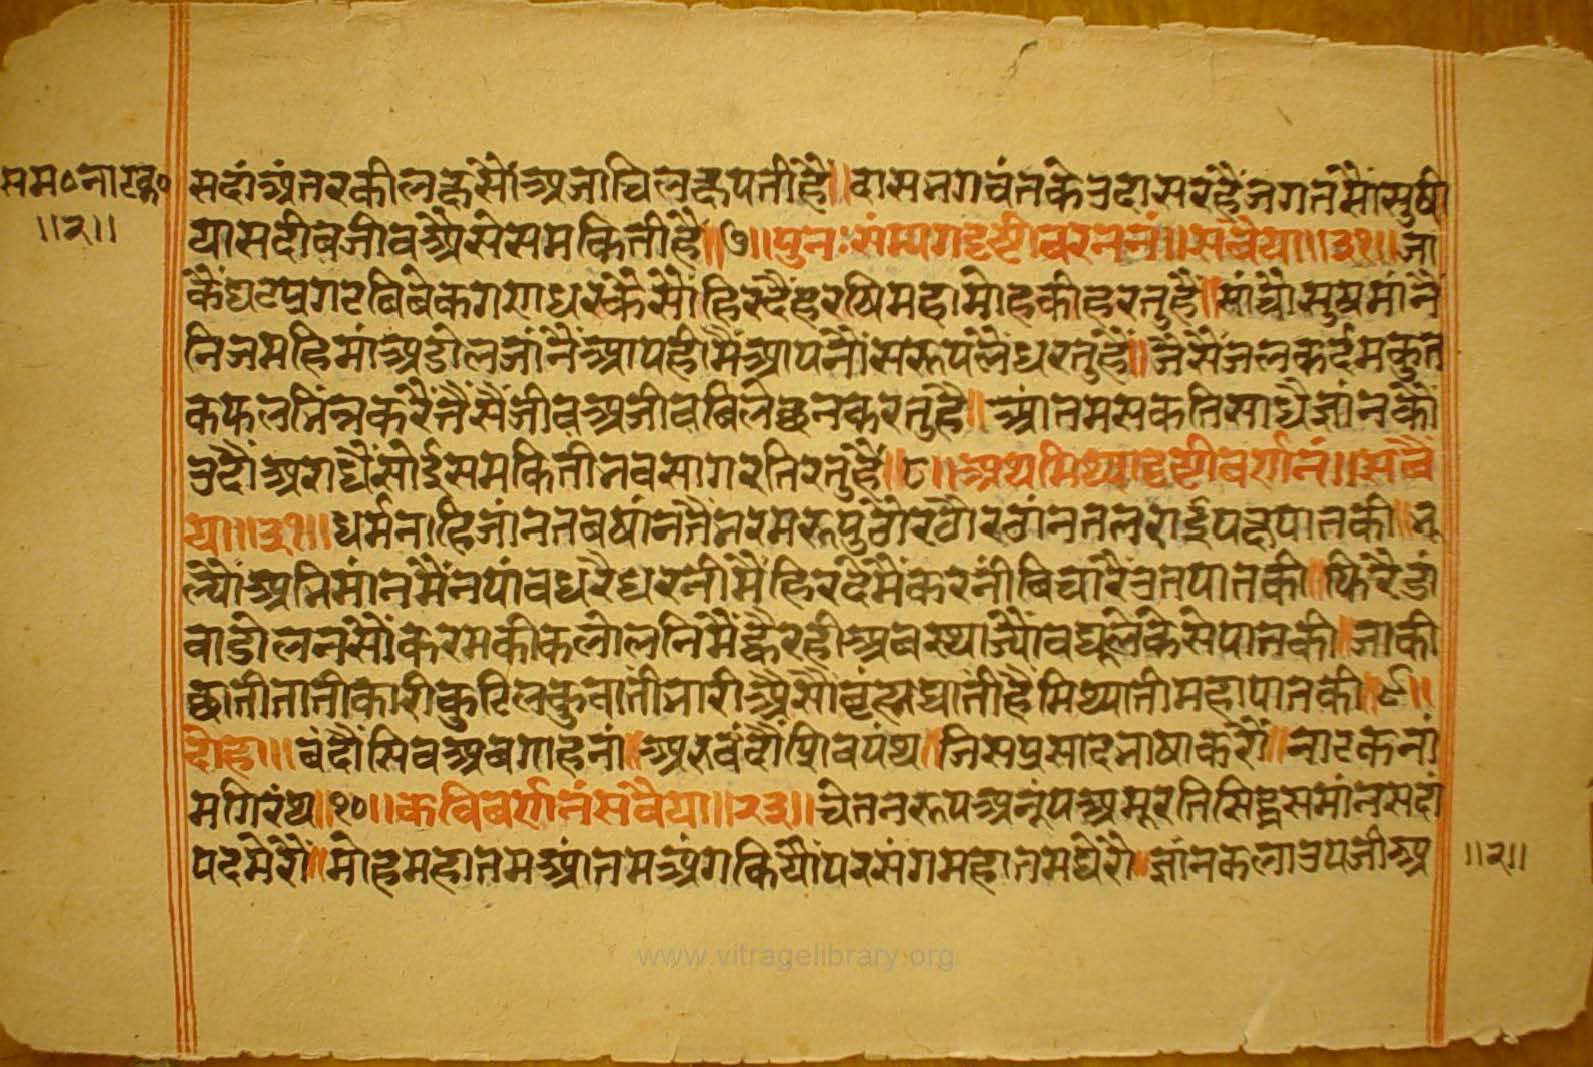 सम०नाटक०
॥२॥
सदांअंतरकीलछसौंअजाचीलछपतीहै॥दासभगवंतकेउदासरहैंजगतसौंसुषी
यासदीवजीवअैसेसमकितीहै॥७॥पुनःसंम्यगदृष्टीवरननं॥सवैया॥३१॥जा
कैंघटप्रगटबिबेकगणधरकैसौंहिरदैंहरषिमहामोहकौंहरतुहै॥सांचौसुषमांनैं
निजमहिमांअडोलजांनैंआपहीमैंआपनौंसरूपलैधरतुहै॥जैसैंजलकर्दमकुत
कफलभिंन्नकरैंतैसैंजीवअजीवबिलछनकरतुहै॥आतमसकतिसाधैज्ञांनकौं
उदौंअराधैंसोईसमकितीभवसागरतिरतुहै॥८॥अथमिथ्यादृष्टीवर्णनं॥सवै
या॥३१॥धर्मनांहिजांनतबषांनतभैंभरमरूपुठौरठौरठांनतलराईपछपातकी॥भू
ल्यौंअभिमांनमैंनपांवधरैधरनीमैंहिरदेमैंकरनींबिचारैंउतपातकी॥फिरैडां
वाडोलनसौंकरमकीकलोलनिमैंह्वैरहीअवस्थाज्यौंवघूलेकेसेपातकी॥जाकी
छातीतातीकारीकुटिलकुवातीभारीअैसौब्रंह्मघातीहैमिथ्यातीमहापातकी॥९॥
दोहा॥बंदौंसिवअवगाहनां॥अरुवंदौंशिवपंथ॥जिसप्रसादभाषाकरौं॥नाटकनां
मगिरंथ॥१०॥कविवर्णनंसवैया॥२३॥चेतनरूपअनूंपअमूरतिसिद्धसमांनसदां
पदमेरौ॥मोहमहातमआंतमअंगकियौंपरसंगमहातमघेरौ॥ज्ञांनकलाउपजीअ
॥२॥
www.vitragelibrary.org